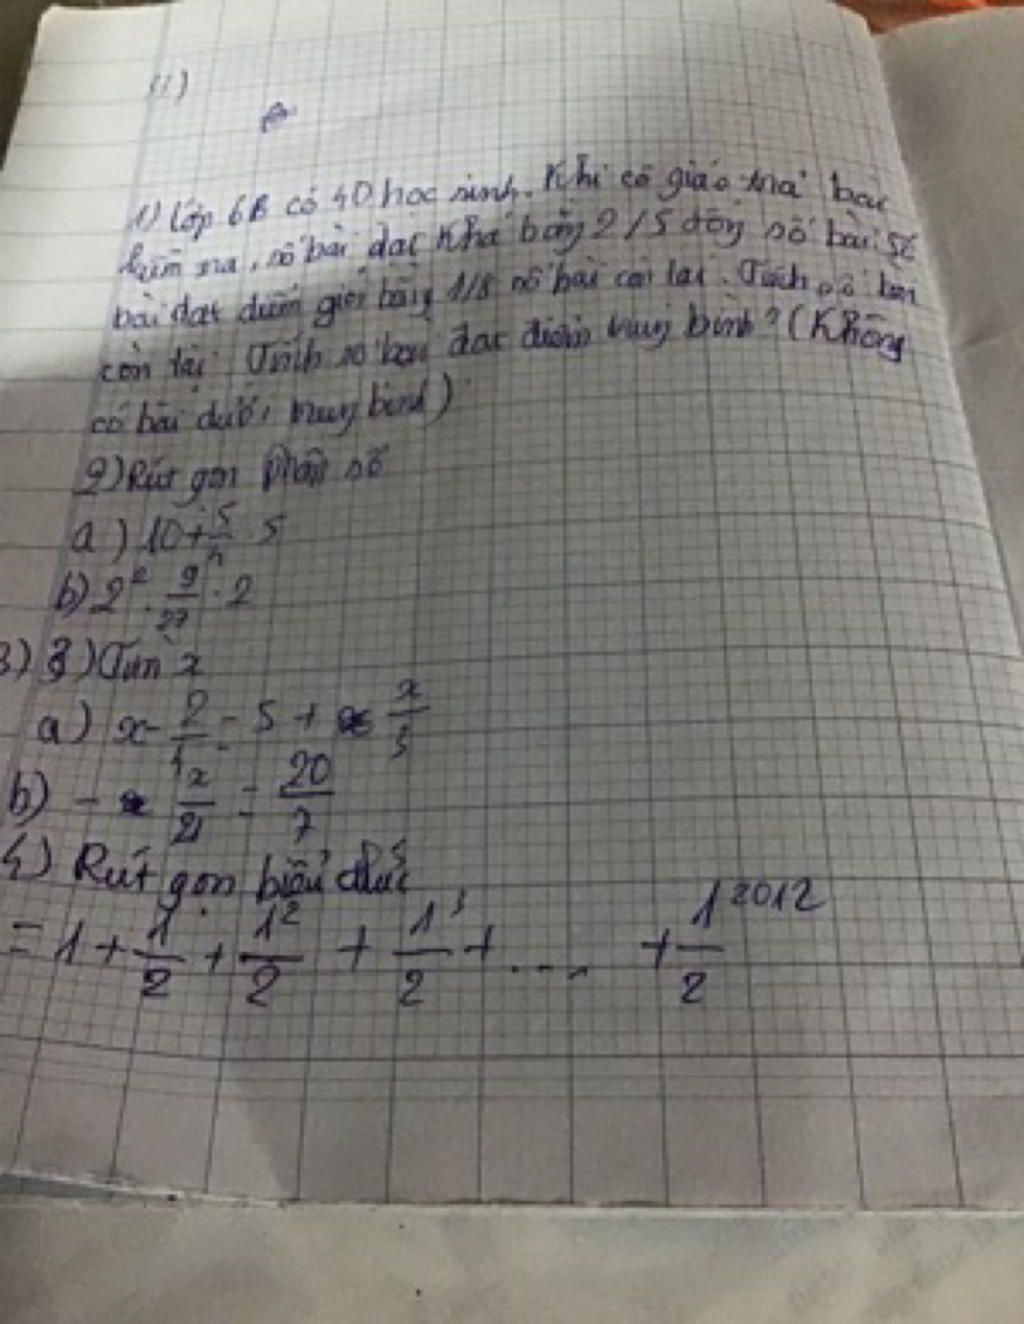 (1)
1) Lớp 6B có 40 học sinh. Khi cô giáo trả bài
kiểm tra, số bài đạt Khá bằng 2/5 tổng số bài. Số
bài đạt điểm giỏi bằng 1/8 số bài còn lại. Tính số bài
còn lại. Tính số bài đạt điểm trung bình? (Không
có bài dưới trung bình)
2) Rút gọn phân số
a) 10 + 5/ . 5
b) 2² . 9/27 . 2
3) 3) Tìm x
a) x - 2/ = 5 + x/5
b) - x/21 = 20/7
4) Rút gọn biểu thức
= 1 + 1/2 + 1²/2 + 1³/2 + .... + 1²⁰¹²/2